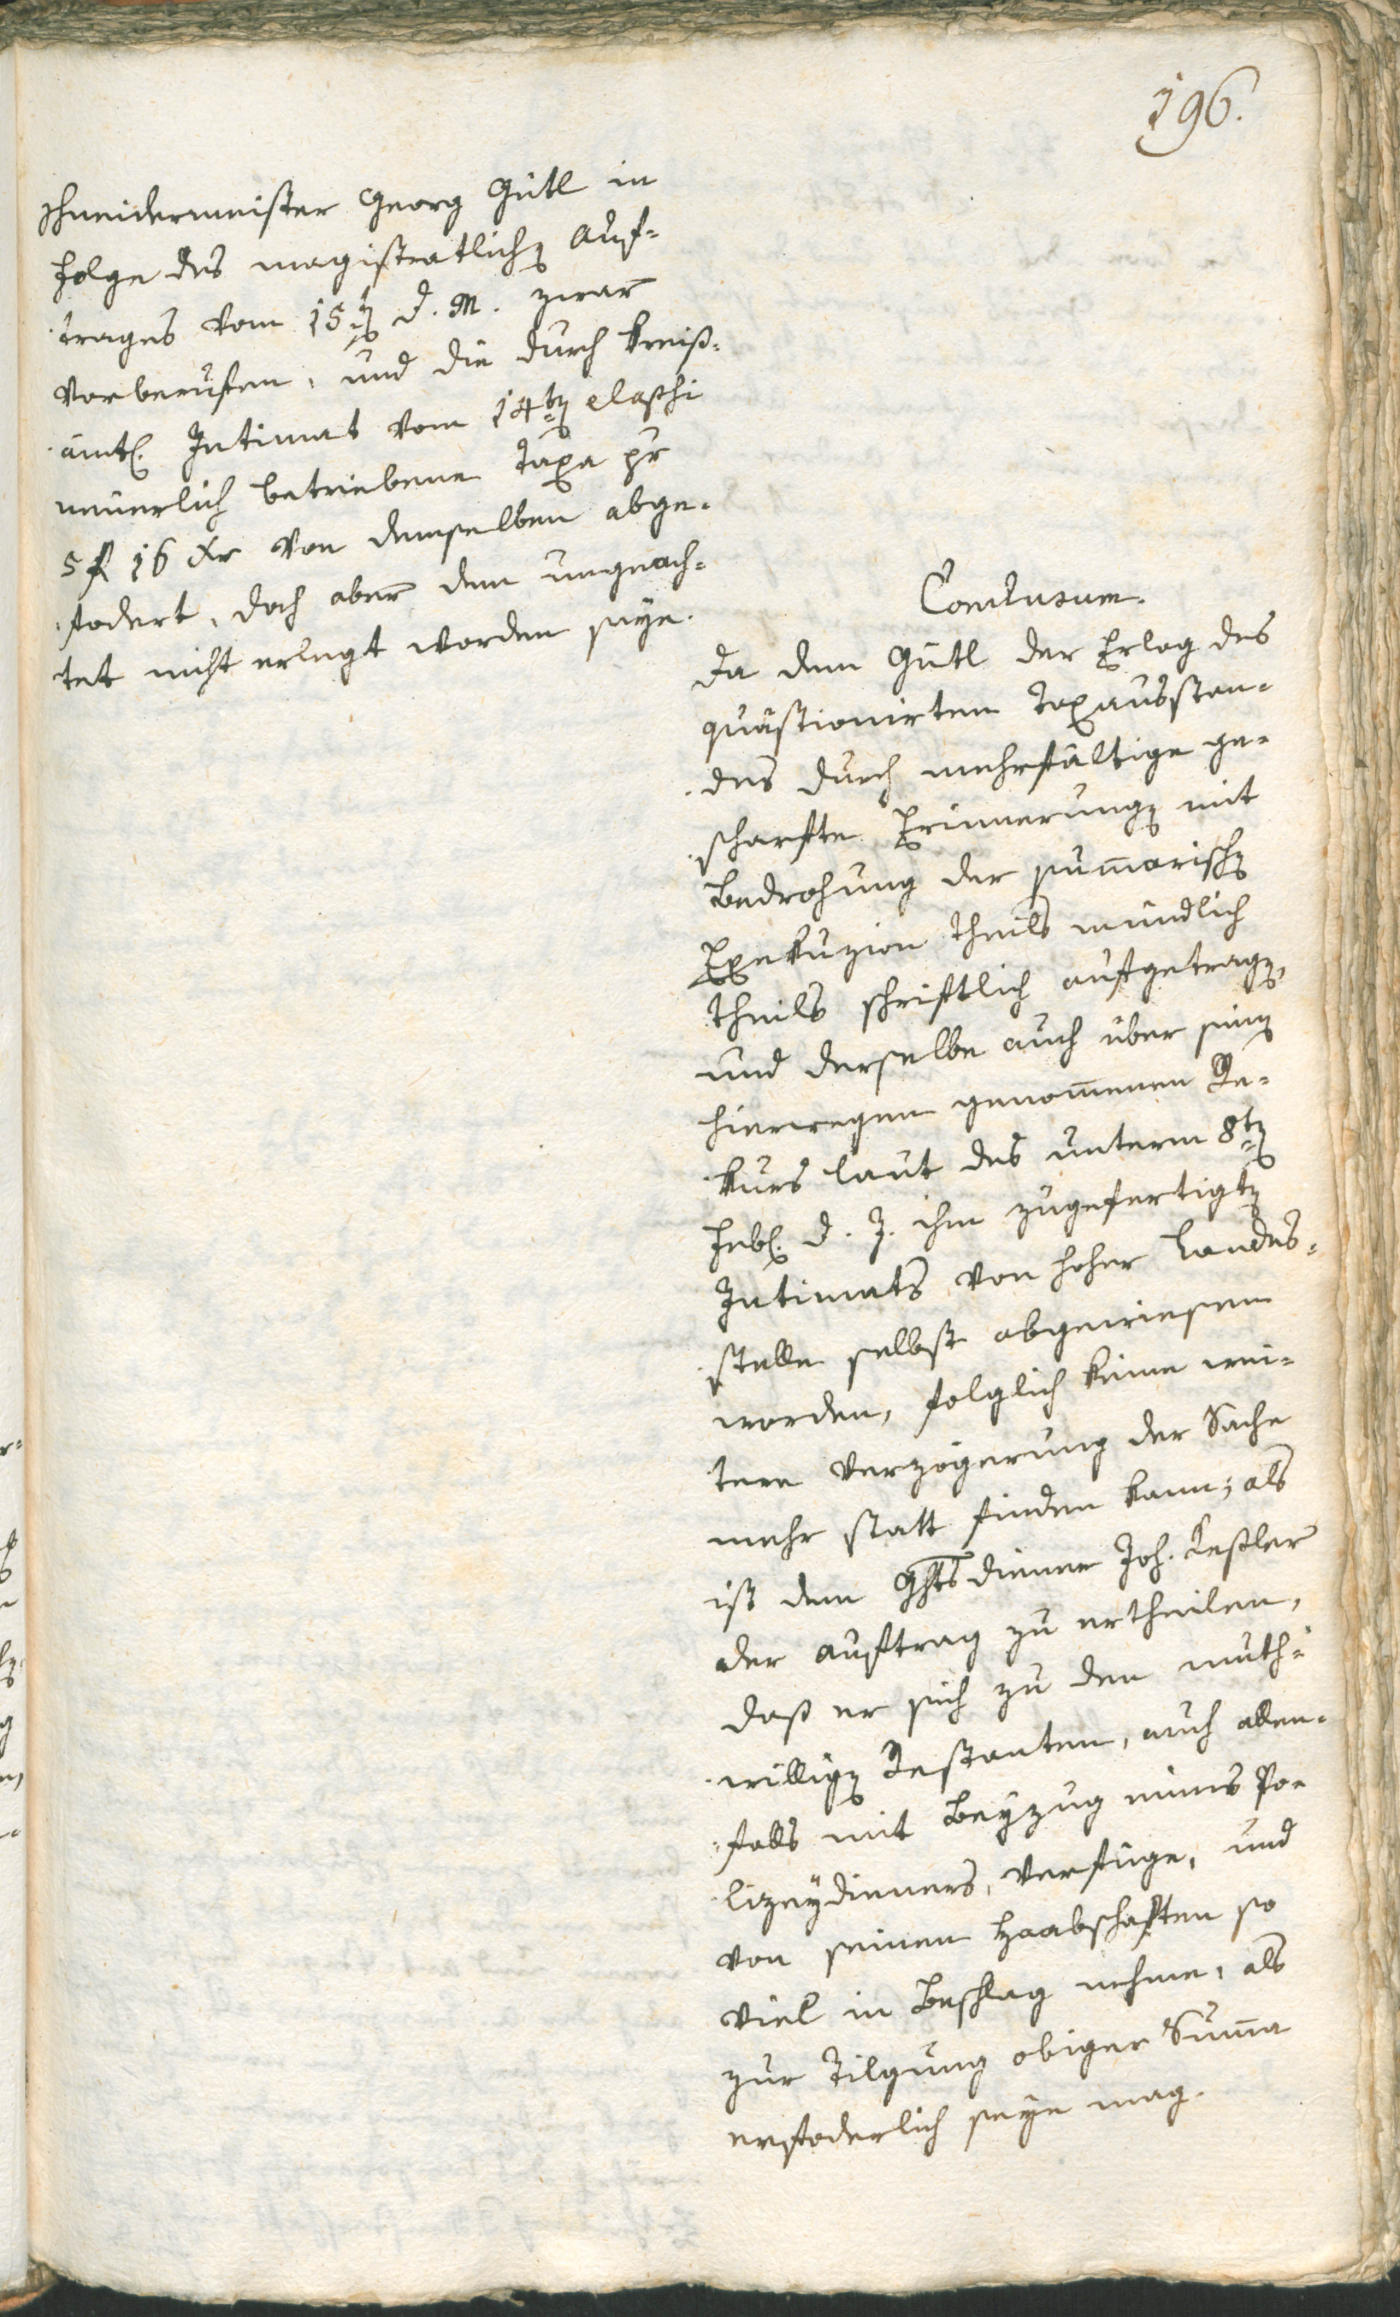 196.
schneidermeister Georg Gütl in
Folge des magistratlichen Auf-
trages vom 15ten d. M. zwar
vorberufen, und die durch kreiß-
ämtl. Intimat vom 14ten elapsi
neuerlich betriebene Taxa pr
5 f 16 xr von demselben abge-
fodert, doch aber dem ungeach-
tet nicht erlegt worden seye.
Conclusum.
Da dem Gütl der Erlag des
quästionirten Taxausstan-
des durch mehrfältige ge-
schärfte Erinnerungen mit
Bedrohung der sum̄arischen
Exekuzion theils mündlich
theils schriftlich aufgetragen,
und derselbe auch über seinen
hierwegen genom̄enen Re-
kurs laut des unterm 8ten
Febr. d. J. ihm zugefertigten
Intimats von hoher Landes-
stelle selbst abgewiesen
worden, folglich keine wei-
tere Verzögerung der Sache
mehr statt finden kann; als
ist dem Ghtsdiener Joh. Keßler
der Auftrag zu ertheilen,
daß er sich zu den muth-
willigen Restanten, auch allen-
falls mit Beyzug eines Po-
lizeydieners, verfüge, und
von seinen Haabschaften so
viel in Beschlag nehme, als
zur Tilgung obiger Sum̄a
erfoderlich seye mag.